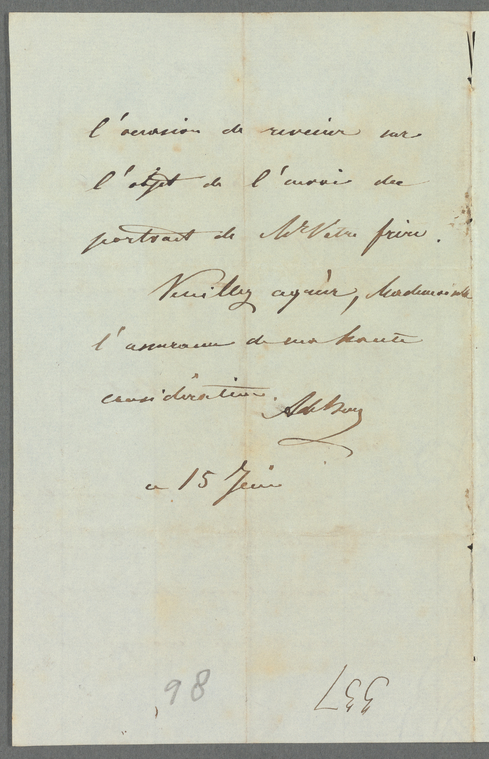 l'occasion de revenir sur
l'objet de l'envoi du
portrait de Mr Votre frère.
Veuillez agréer, Mademoiselle
l'assurance de ma haute
considération.
ce 15 Juin
98
337